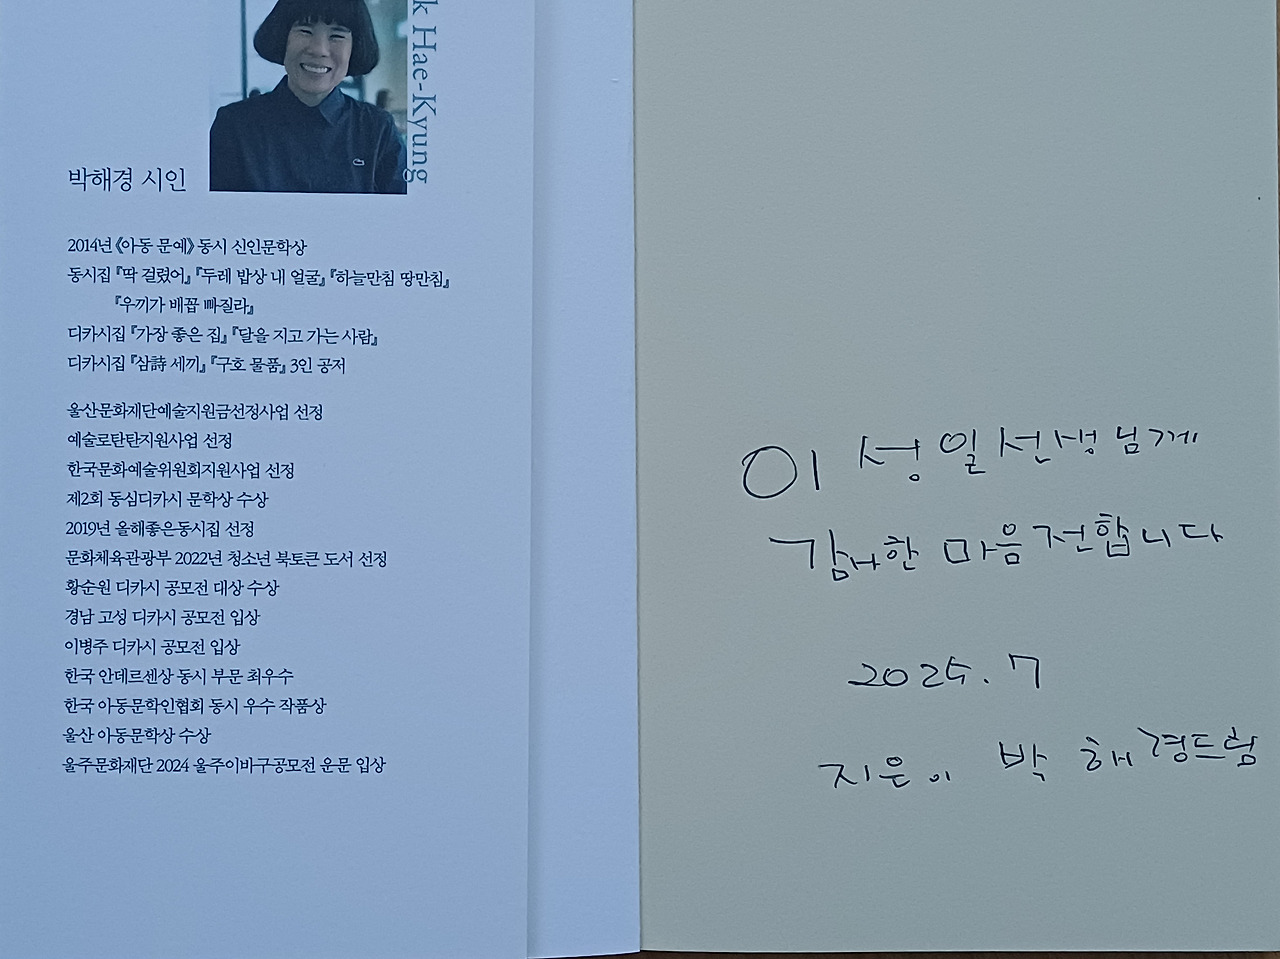 k Hae-Kyung
박해경 시인
2014년 《아동 문예》 동시 신인문학상
동시집 『딱 걸렸어』 『두레 밥상 내 얼굴』 『하늘만침 땅만침』
『우끼가 배꼽 빠질라』
디카시집 『가장 좋은 집』 『달을 지고 가는 사람』
디카시집 『삼詩 세끼』 『구호 물품』 3인 공저
울산문화재단예술지원금선정사업 선정
예술로탄탄지원사업 선정
한국문화예술위원회지원사업 선정
제2회 동심디카시 문학상 수상
2019년 올해좋은동시집 선정
문화체육관광부 2022년 청소년 북토큰 도서 선정
황순원 디카시 공모전 대상 수상
경남 고성 디카시 공모전 입상
이병주 디카시 공모전 입상
한국 안데르센상 동시 부문 최우수
한국 아동문학인협회 동시 우수 작품상
울산 아동문학상 수상
울주문화재단 2024 울주이바구공모전 운문 입상
이 성일 선생님께
감사한 마음 전합니다
2025. 7
지은이 박 해경드림